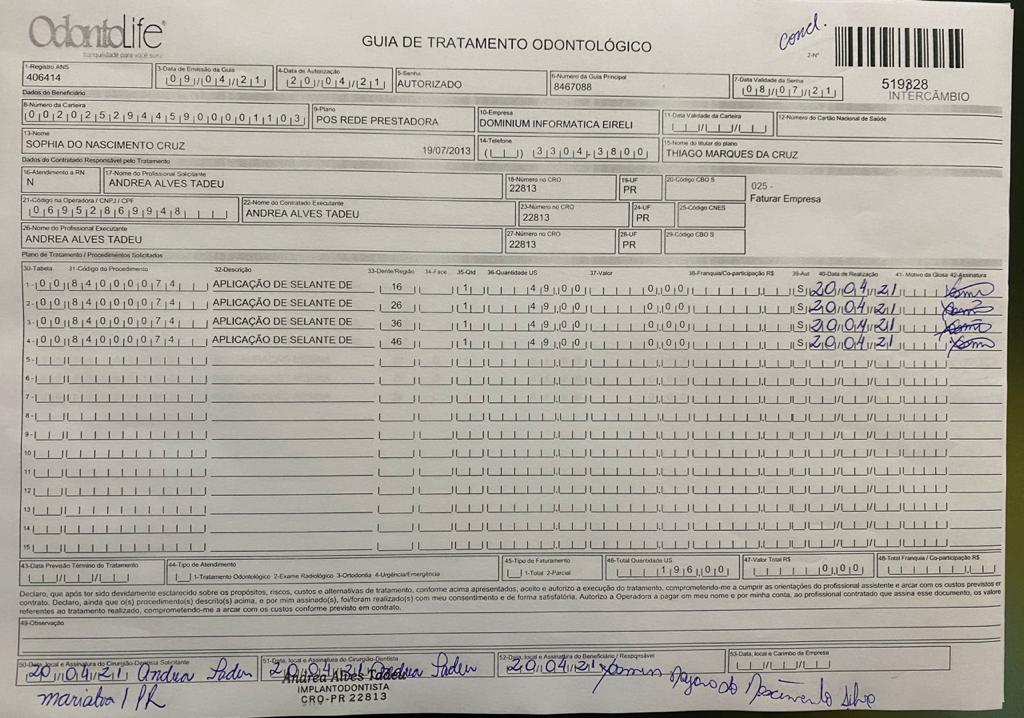 OdontoLife®
tranquilidade para você sorrir
GUIA DE TRATAMENTO ODONTOLÓGICO
concl.
2-Nº
519828
INTERCÂMBIO
1-Registro ANS
406414
3-Data de Emissão da Guia
09/04/21
4-Data de Autorização
20/04/21
5-Senha
AUTORIZADO
6-Numero da Guia Principal
8467088
7-Data Validade da Senha
08/07/21
Dados do Beneficiário
8-Número da Carteira
00202529445900001103
9-Plano
POS REDE PRESTADORA
10-Empresa
DOMINIUM INFORMATICA EIRELI
11-Data Validade da Carteira
12-Número do Cartão Nacional de Saúde
13-Nome
SOPHIA DO NASCIMENTO CRUZ 19/07/2013
14-Telefone
( ) 3304-3800
15-Nome do titular do plano
THIAGO MARQUES DA CRUZ
Dados do Contratado Responsável pelo Tratamento
16-Atendimento a RN
N
17-Nome do Profissional Solicitante
ANDREA ALVES TADEU
18-Número no CRO
22813
19-UF
PR
20-Código CBO S
025 -
Faturar Empresa
21-Código na Operadora / CNPJ / CPF
06952869948
22-Nome do Contratado Executante
ANDREA ALVES TADEU
23-Número no CRO
22813
24-UF
PR
25-Código CNES
26-Nome do Profissional Executante
ANDREA ALVES TADEU
27-Número no CRO
22813
28-UF
PR
29-Código CBO S
Plano de Tratamento / Procedimentos Solicitados
30-Tabela 31-Código do Procedimento 32-Descrição 33-Dente/Região 34-Face 35-Qtd 36-Quantidade US 37-Valor 38-Franquia/Co-participação R$ 39-Aut 40-Data de Realização 41- Motivo da Glosa 42-Assinatura
1- 00 84000074 APLICAÇÃO DE SELANTE DE 16 1 49,00 0,00 S 20/04/21
2- 00 84000074 APLICAÇÃO DE SELANTE DE 26 1 49,00 0,00 S 20/04/21
3- 00 84000074 APLICAÇÃO DE SELANTE DE 36 1 49,00 0,00 S 20/04/21
4- 00 84000074 APLICAÇÃO DE SELANTE DE 46 1 49,00 0,00 S 20/04/21
5-
6-
7-
8-
9-
10
11
12
13
14
15
43-Data Previsão Término do Tratamento
44-Tipo de Atendimento
1-Tratamento Odontológico 2-Exame Radiológico 3-Ortodontia 4-Urgência/Emergência
45-Tipo de Faturamento
1-Total 2-Parcial
46-Total Quantidade US
196,00
47-Valor Total R$
0,00
48-Total Franquia / Co-participação R$
Declaro, que após ter sido devidamente esclarecido sobre os propósitos, riscos, custos e alternativas de tratamento, conforme acima apresentados, aceito e autorizo a execução do tratamento, comprometendo-me a cumprir as orientações do profissional assistente e arcar com os custos previstos em
contrato. Declaro, ainda que o(s) procedimento(s) descrito(s) acima, e por mim assinado(s), foi/foram realizado(s) com meu consentimento e de forma satisfatória. Autorizo a Operadora a pagar em meu nome e por minha conta, ao profissional contratado que assina esse documento, os valores
referentes ao tratamento realizado, comprometendo-me a arcar com os custos conforme previsto em contrato.
49-Observação
50-Data, local e Assinatura do Cirurgião-Dentista Solicitante
20/04/21 Andrea Tadeu
Marialva / PR
51-Data, local e Assinatura do Cirurgião-Dentista
20/04/21 Andrea Tadeu
Andrea Alves Tadeu
IMPLANTODONTISTA
CRO-PR 22813
52-Data, local e Assinatura do Beneficiário / Responsável
20/04/21 do Nascimento Silva
53-Data, local e Carimbo da Empresa